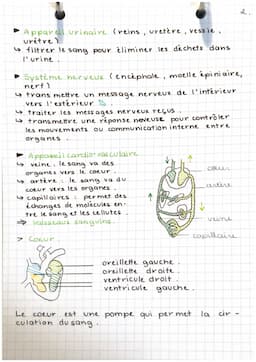 2.
► Appareil urinaire (reins, uretère, vessie,
urètre)
↳ filtrer le sang pour éliminer les déchets dans
l'urine.
► Système nerveux (encéphale, moelle épinière,
nerf)
↳ transmettre un message nerveux de l'intérieur
vers l'extérieur
↳ traiter les messages nerveux reçus.
↳ transmettre une réponse nerveuse pour contrôler
les mouvements ou communication interne entre
organes.
► Appareil cardio-vasculaire
↳ veine : le sang va des
organes vers le coeur.
↳ artère : le sang va du
coeur vers les organes.
↳ capillaires : permet des
échanges de molécules en-
tre le sang et les cellules.
⇒ vaisseaux sanguins.
coeur
artère
veine
capillaire
> Coeur
oreillette gauche.
oreillette droite.
ventricule droit.
ventricule gauche.
Le coeur est une pompe qui permet la cir-
culation du sang.